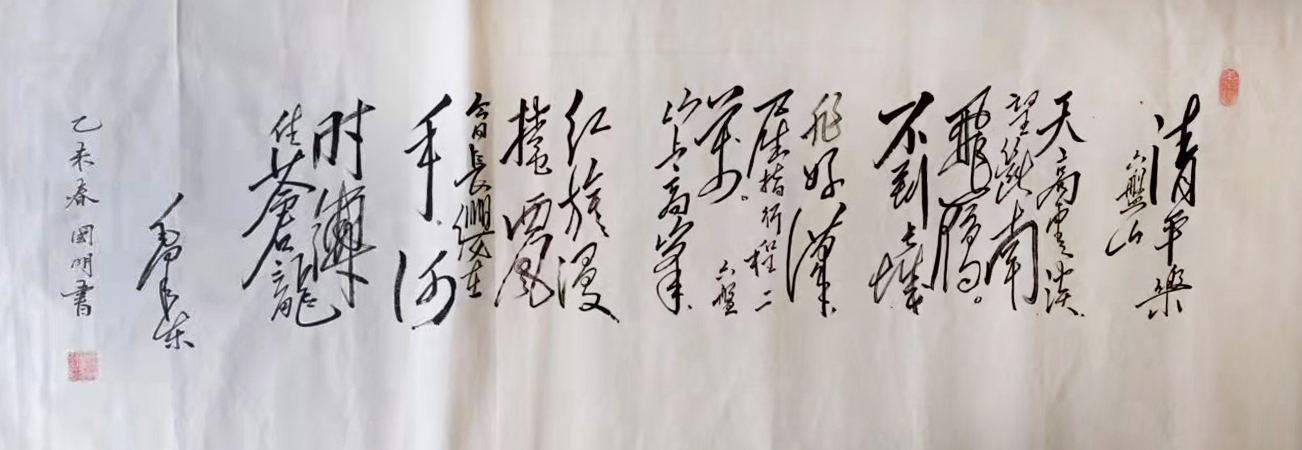 清平樂
六盤山
天高雲淡
望斷南
飛雁。
不到長城
非好漢
屈指行程二
萬。六盤
山上高峯
红旗漫
捲西風
今日長纓在
手，何
時縛
住蒼龍
毛澤東
乙未春國明書